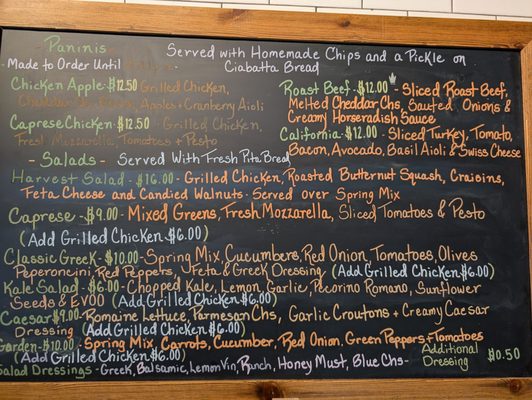 - Paninis -
Served with Homemade Chips and a Pickle on
Made to Order Until
Ciabatta Bread
Chicken Apple - $12.50 Grilled Chicken,
Apples + Cranberry Aioli
Caprese Chicken - $12.50 - Grilled Chicken,
Fresh Mozzarella, Tomatoes + Pesto
Roast Beef - $12.00 - Sliced Roast Beef,
Melted Cheddar Chs, Sauted Onions &
Creamy Horseradish Sauce
California - $12.00 - Sliced Turkey, Tomato,
Bacon, Avocado, Basil Aioli & Swiss Cheese
- Salads - Served With Fresh Pita Bread
Harvest Salad - $16.00 - Grilled Chicken, Roasted Butternut Squash, Craisins,
Feta Cheese and Candied Walnuts - Served Over Spring Mix
Caprese - $9.00 - Mixed Greens, Fresh Mozzarella, Sliced Tomatoes & Pesto
(Add Grilled Chicken $6.00)
Classic Greek - $10.00 - Spring Mix, Cucumbers, Red Onion, Tomatoes, Olives
Peperoncini, Red Peppers, Feta & Greek Dressing (Add Grilled Chicken $6.00)
Kale Salad - $6.00 - Chopped Kale, Lemon, Garlic, Pecorino Romano, Sunflower
Seeds & EVOO (Add Grilled Chicken $6.00)
Caesar $9.00 - Romaine Lettuce, Parmesan Chs, Garlic Croutons + Creamy Caesar
Dressing (Add Grilled Chicken $6.00)
Garden - $10.00 - Spring Mix, Carrots, Cucumber, Red Onion, Green Peppers + Tomatoes
(Add Grilled Chicken $6.00)
Additional Dressing $0.50
Salad Dressings - Greek, Balsamic, Lemon Vin, Ranch, Honey Must, Blue Chs -